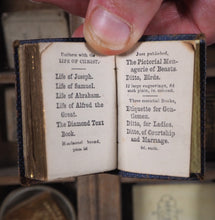 Uniform with the
LIFE OF CHRIST.
Life of Joseph.
Life of Samuel.
Life of Abraham.
Life of Alfred the
Great.
The Diamond Text
Book.
Handsomely bound,
price 1d
Just published,
The Pictorial Men-
agerie of Beasts.
Ditto, Birds.
12 large engravings, 64
each, in
Three essential Books,
Etiquette for Gen-
tlemen.
Ditto, for Ladies.
Ditto, of Courtship
and Marriage.
6d. each.